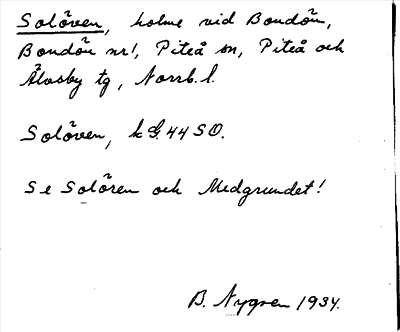 Solöven, holme vid Bondön,
Bondön nr 1, Piteå sn, Piteå och
Älvsby tg, Norrb. l.
Solöven, k G. 44 SO.
Se Solören och Medgrundet!
B. Nygren 1934.